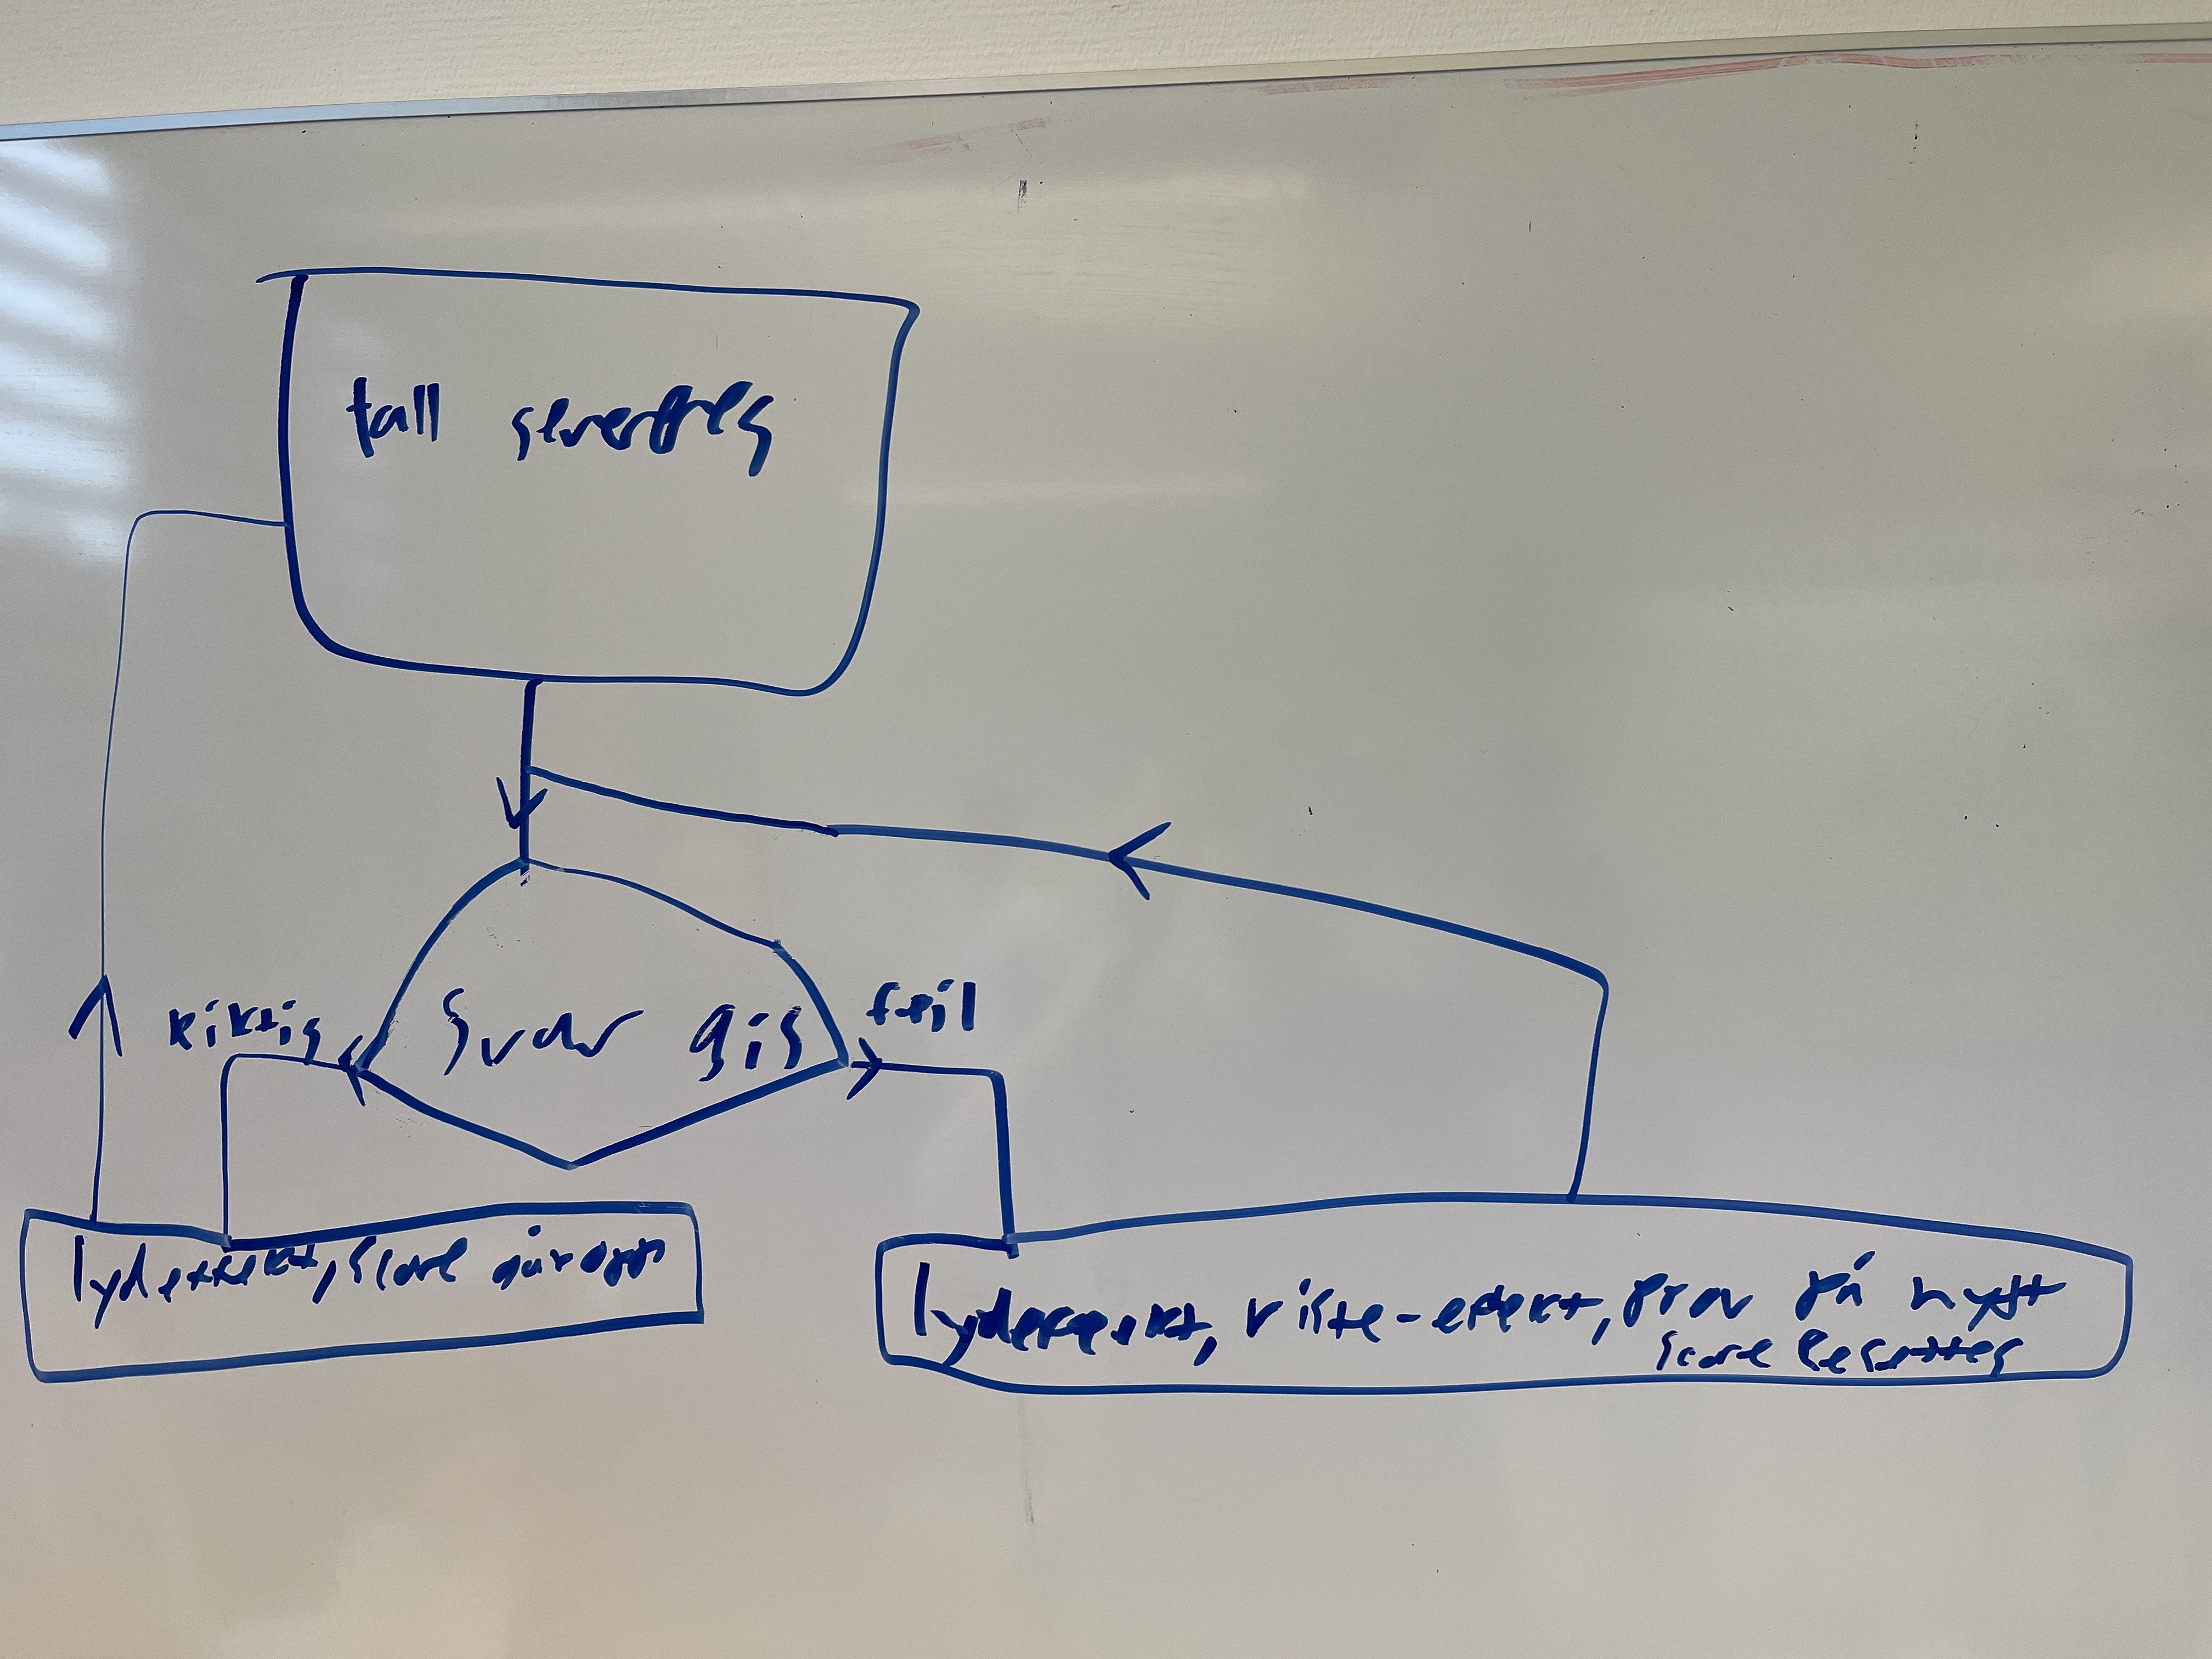 tall
Svar gis
riktig
feil
lydeffekt, score går opp
lydeffekt, riste-efekt, prøv på nytt
score